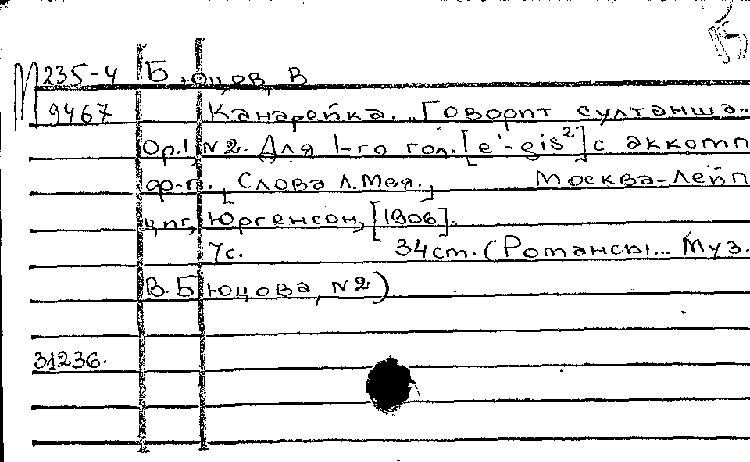 М 235-4 Бюцов, В
9467 Канарейка. „Говорит султанша...
Op.1, №2. Для 1-го гол. [e'-gis²] с аккомп
ф-п. [Слова Л. Мея.] Москва-Лейп
циг, Юргенсон, [1906].
7с. 34см. (Романсы... Муз.
В. Бюцова, №2)
31236.